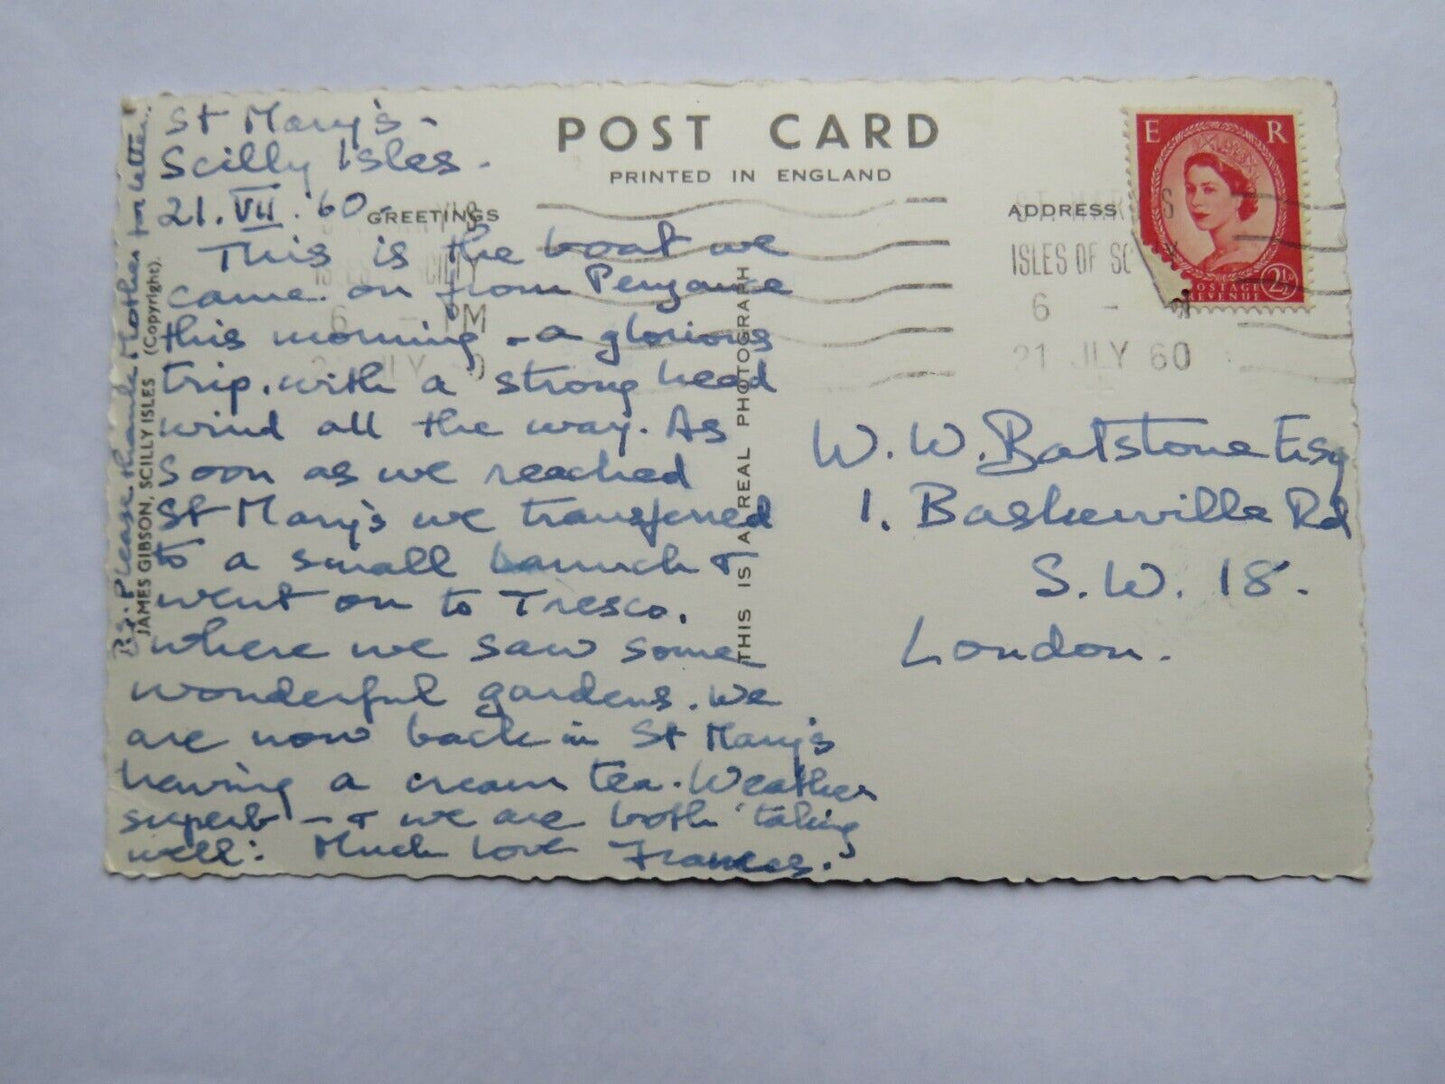 St Mary's -
Scilly Isles -
21. VII. '60 -
This is the boat we
came on from Penzance
this morning - a glorious
trip. with a strong head
wind all the way. As
soon as we reached
St Mary's we transferred
to a small launch &
went on to Tresco.
where we saw some
wonderful gardens. We
are now back in St Mary's
having a cream tea. Weather
superb - & we are both taking
well: Much Love Frances.
P.S. Please thank Mother for letter...
JAMES GIBSON, SCILLY ISLES (Copyright).
POST CARD
PRINTED IN ENGLAND
GREETINGS
ADDRESS
THIS IS A REAL PHOTOGRAPH
E R
POSTAGE
REVENUE
2½
ISLES OF SC
6 -
21 JLY 60
6 - PM
W. W. Batstone Esq
1. Baskerville Rd
S.W. 18.
London.